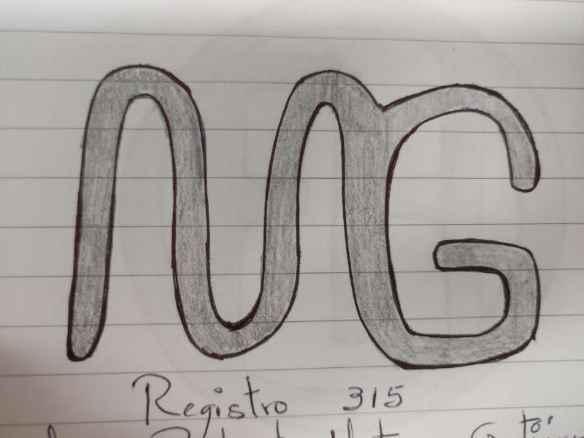 MG
Registro 315